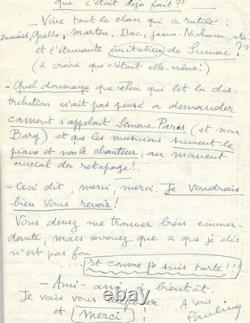 que c'était déjà fait ??
- Vive tout le clan qui a
Gréllo, Martin, Dac, Jean Nohain, etc
et l'étonnante imitatrice de Sumac ??
(à croire que c'était elle-même !)
- Quel dommage que celui qui lit la dis-
tribution n'ait pas pensé à demander
comment s'appelait Simone Paris (et non
Bary) et que les musiciens suivent le
piano et non le chanteur, au moment
crucial du retapage !..
- Ceci dit, merci, merci. Je voudrais
bien vous revoir !
Vous devez me trouver bien emmer-
dante, mais avouez que ce que je dis
n'est pas
tarte !!
- Ami - ami, à bientôt.
Je vais vous
et merci !
A vous
Pauline
ebay